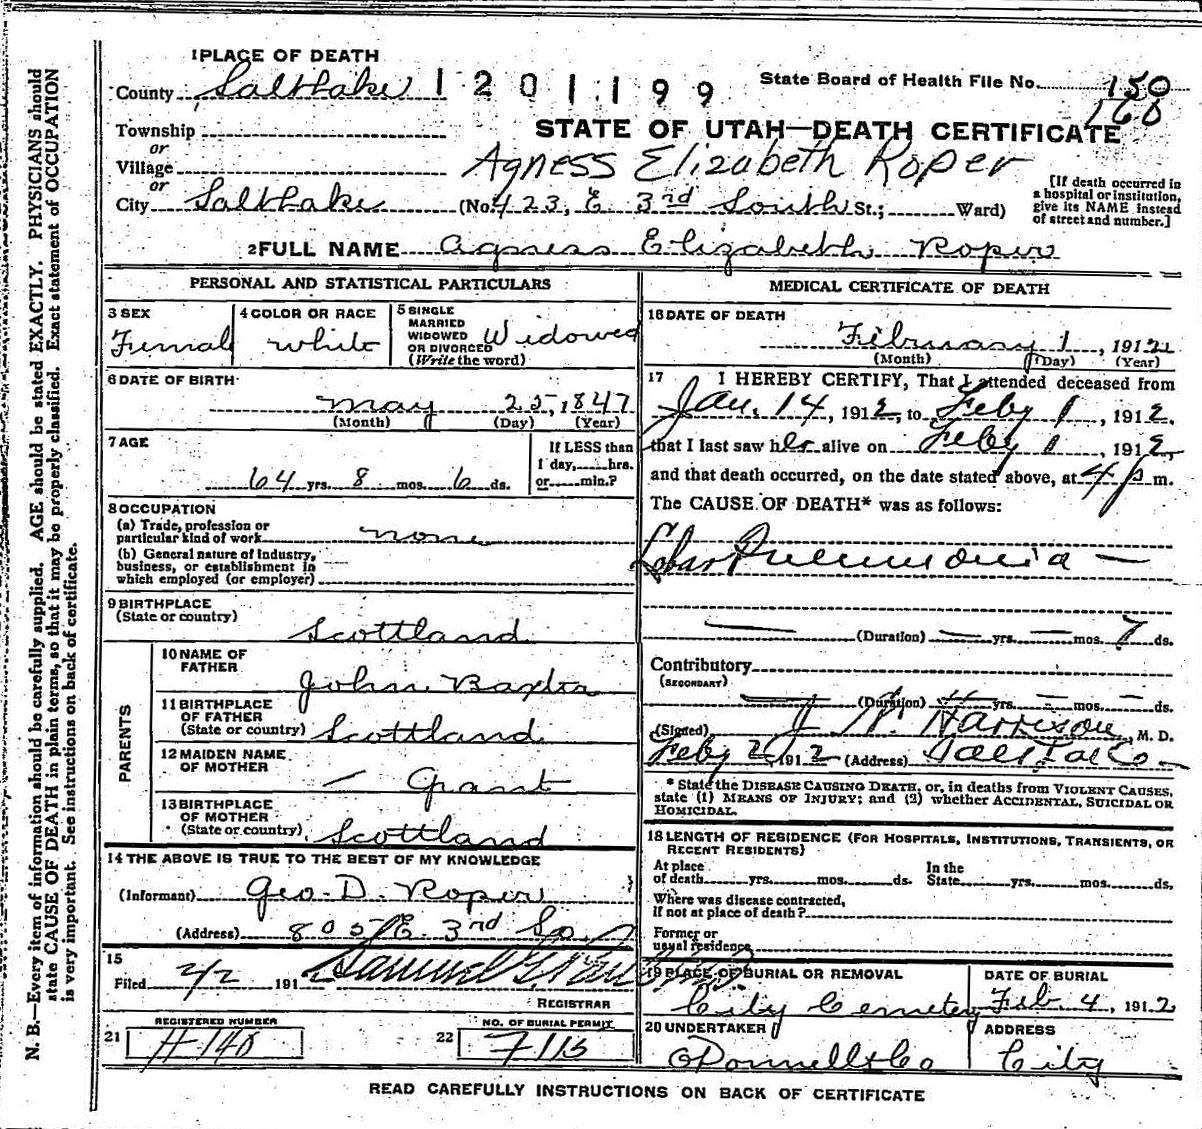 1 PLACE OF DEATH
County Saltlake 1 2 0 1 1 9 9 State Board of Health File No. 150
160
Township
STATE OF UTAH—DEATH CERTIFICATE
or
Village
Agness Elizabeth Roper
or
City Saltlake (No. 423, E. 3rd South St.; Ward)
[If death occurred in
a hospital or institution,
give its NAME instead
of street and number.]
2 FULL NAME Agness Elizabeth Roper
PERSONAL AND STATISTICAL PARTICULARS
3 SEX
Femal
4 COLOR OR RACE
white
5 SINGLE
MARRIED
WIDOWED
OR DIVORCED
(Write the word)
Widowed
6 DATE OF BIRTH
May 25, 1847
(Month) (Day) (Year)
7 AGE
64 yrs. 8 mos. 6 ds.
If LESS than
1 day, hrs.
or min.?
8 OCCUPATION
(a) Trade, profession or
particular kind of work none
(b) General nature of Industry,
business, or establishment in
which employed (or employer)
9 BIRTHPLACE
(State or country)
Scottland
PARENTS
10 NAME OF
FATHER
John Baxter
11 BIRTHPLACE
OF FATHER
(State or country) Scottland
12 MAIDEN NAME
OF MOTHER
— Grant
13 BIRTHPLACE
OF MOTHER
(State or country) Scottland
14 THE ABOVE IS TRUE TO THE BEST OF MY KNOWLEDGE
(Informant) Geo. D. Roper
(Address) 805 E. 3rd So.
15
Filed 2/2 191 Samuel G.
REGISTRAR
REGISTERED NUMBER
21 H 140
NO. OF BURIAL PERMIT
22
MEDICAL CERTIFICATE OF DEATH
16 DATE OF DEATH
February 1, 1912
(Month) (Day) (Year)
17 I HEREBY CERTIFY, That I attended deceased from
Jan. 14, 1912, to Feby 1, 1912,
that I last saw her alive on Feby 1, 1912,
and that death occurred, on the date stated above, at 4 p m.
The CAUSE OF DEATH* was as follows:
Lobar Pneumonia —
— (Duration) — yrs. — mos. 7 ds.
Contributory
(SECONDARY)
— (Duration) — yrs. — mos. — ds.
(Signed) J. W. Harrison, M. D.
Feby 2, 1912 (Address)
* State the DISEASE CAUSING DEATH, or, in deaths from VIOLENT CAUSES,
state (1) MEANS OF INJURY; and (2) whether ACCIDENTAL, SUICIDAL OR
HOMICIDAL.
18 LENGTH OF RESIDENCE (FOR HOSPITALS, INSTITUTIONS, TRANSIENTS, OR
RECENT RESIDENTS)
At place
of death yrs. mos. ds.
In the
State yrs. mos. ds.
Where was disease contracted,
if not at place of death?
Former or
usual residence
19 PLACE OF BURIAL OR REMOVAL
City Cemetery
DATE OF BURIAL
Feb. 4, 1912
20 UNDERTAKER
O'Donnell & Co
ADDRESS
City
READ CAREFULLY INSTRUCTIONS ON BACK OF CERTIFICATE
N. B.—Every item of information should be carefully supplied. AGE should be stated EXACTLY. PHYSICIANS should
state CAUSE OF DEATH in plain terms, so that it may be properly classified. Exact statement of OCCUPATION
is very important. See instructions on back of certificate.